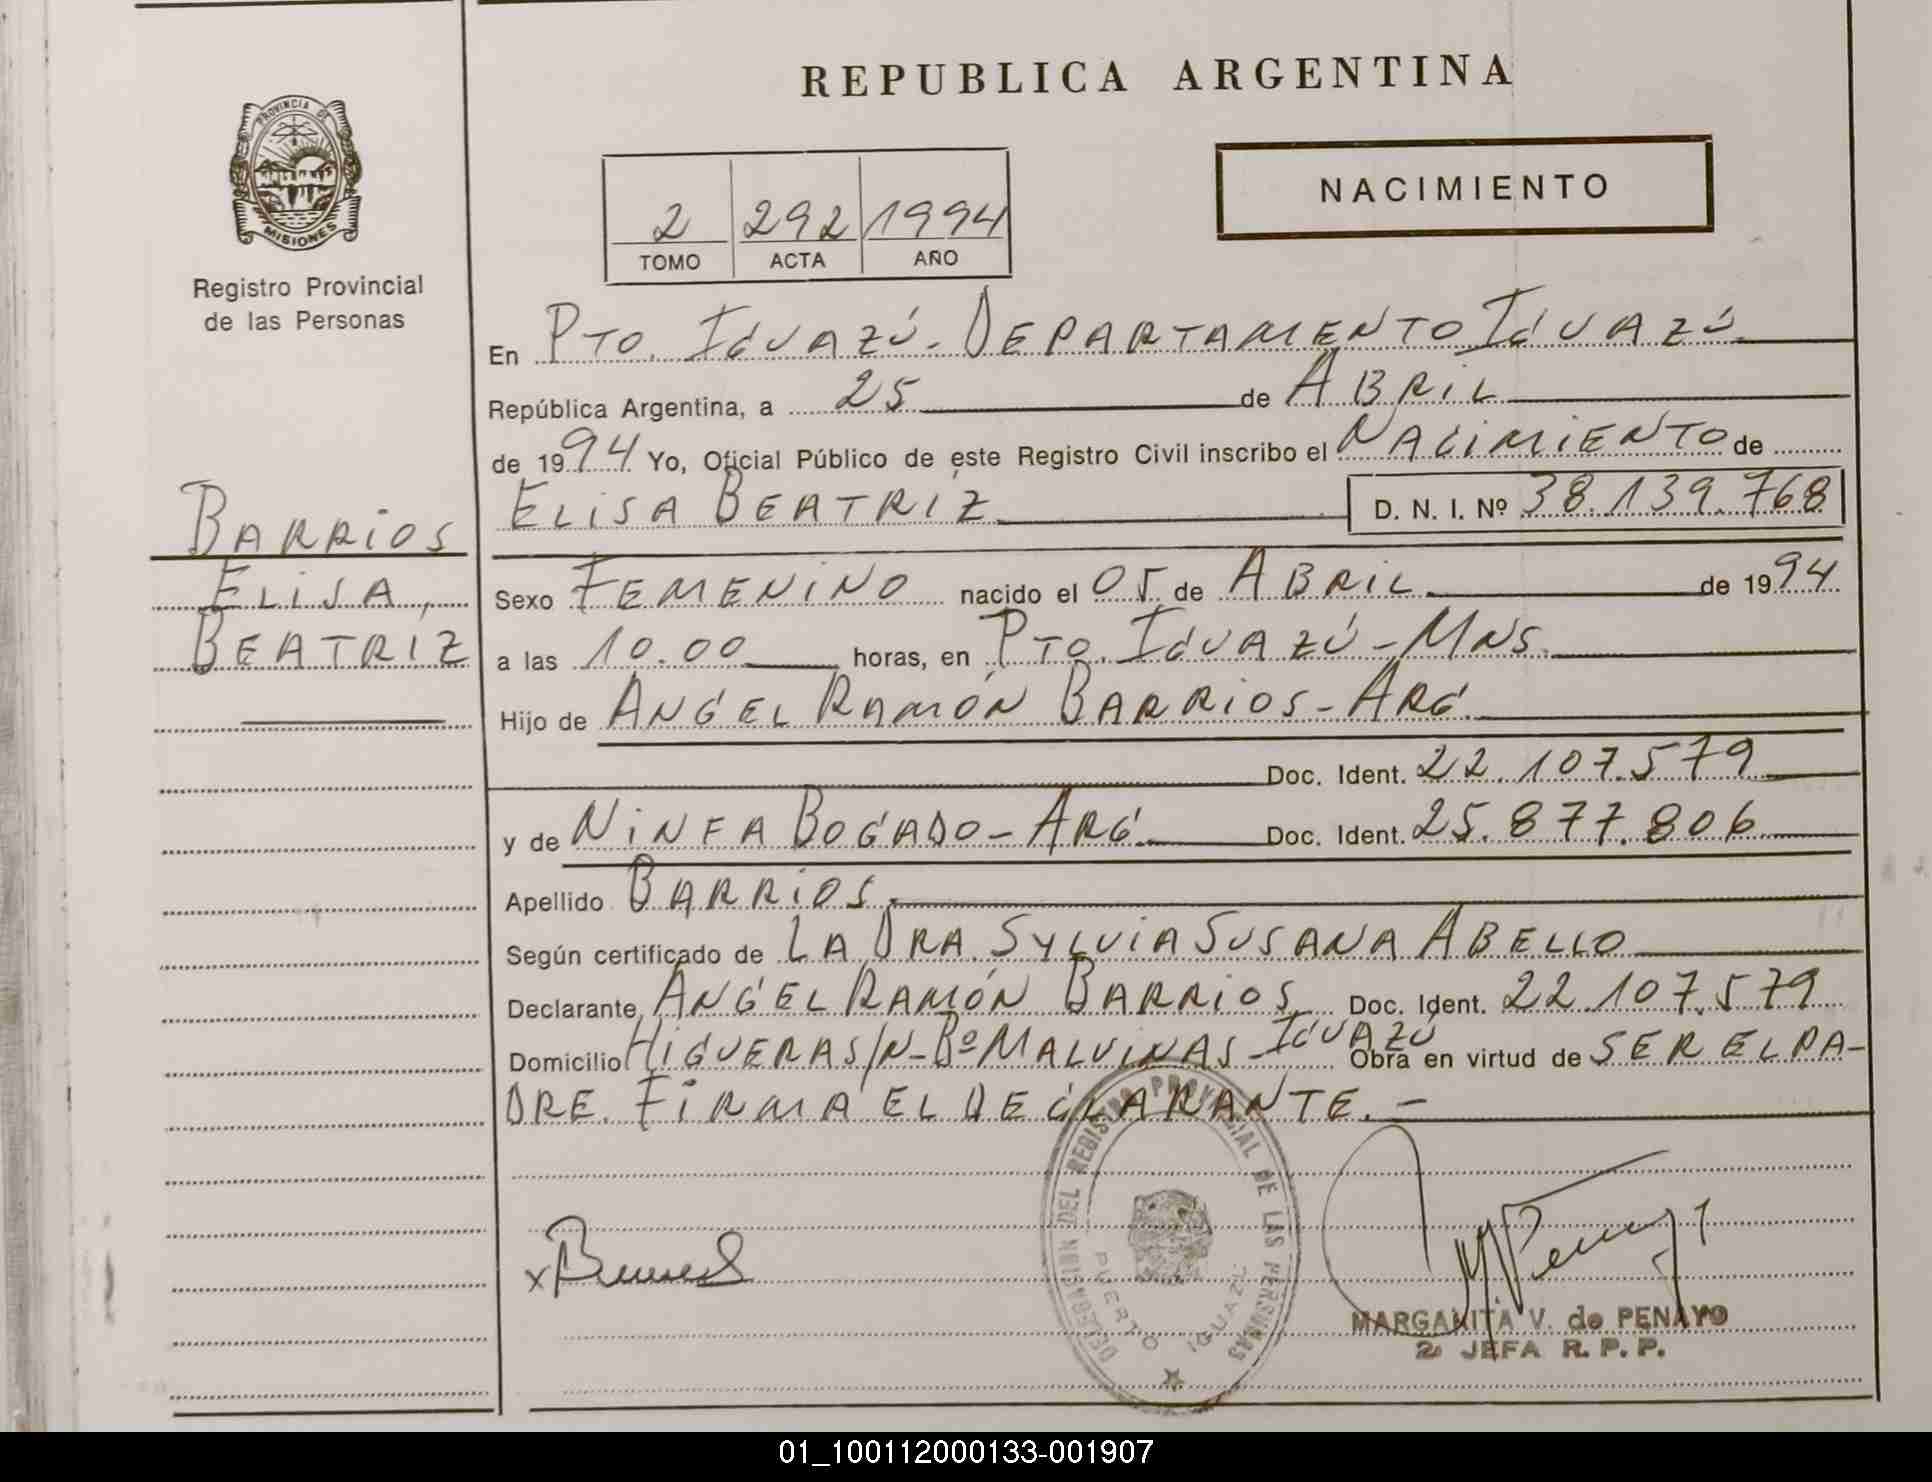 REPUBLICA ARGENTINA
PROVINCIA DE
MISIONES
Registro Provincial
de las Personas
NACIMIENTO
2 292 1994
TOMO ACTA AÑO
En PTO. IGUAZÚ - DEPARTAMENTO IGUAZÚ
República Argentina, a 25 de ABRIL
de 1994 Yo, Oficial Público de este Registro Civil inscribo el NACIMIENTO de
ELISA BEATRÍZ D. N. I. Nº 38.139.768
BARRIOS
ELISA,
BEATRÍZ
Sexo FEMENINO nacido el 05 de ABRIL de 1994
a las 10.00 horas, en PTO. IGUAZÚ - MNS.
Hijo de ANGEL RAMÓN BARRIOS - ARG.
Doc. Ident. 22.107.579
y de NINFA BOGADO - ARG. Doc. Ident. 25.877.806
Apellido BARRIOS.
Según certificado de LA DRA. SYLVIA SUSANA ABELLO
Declarante ANGEL RAMÓN BARRIOS Doc. Ident. 22.107.579
Domicilio HIGUERAS/N - Bº MALVINAS - IGUAZÚ Obra en virtud de SER EL PA-
DRE. FIRMA EL DECLARANTE. -
DELEGACION DEL REGISTRO PROVINCIAL DE LAS PERSONAS
PUERTO IGUAZU
x
MARGARITA V. de PENAYO
2 JEFA R. P. P.
01_100112000133-001907